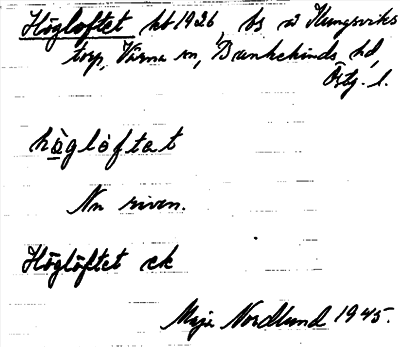 Högloftet hb 1926 bs å Kungsviks
torp, Värna sn, Bankekinds hd,
Östg. l.
hö̀glòftat
Nu riven.
Höglöftet ek
Maja Nordlund 1945.